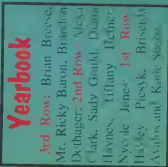 Yearbook
3rd Row: Brian Breese,
Mr. Ricky Baron, Brandon
Dothager; 2nd Row: Alexa
Clark, Sady Gould, Diana
Haynes, Tiffany Hefner,
Nycole Jones; 1st Row:
Hayley Pievik,
and Katie